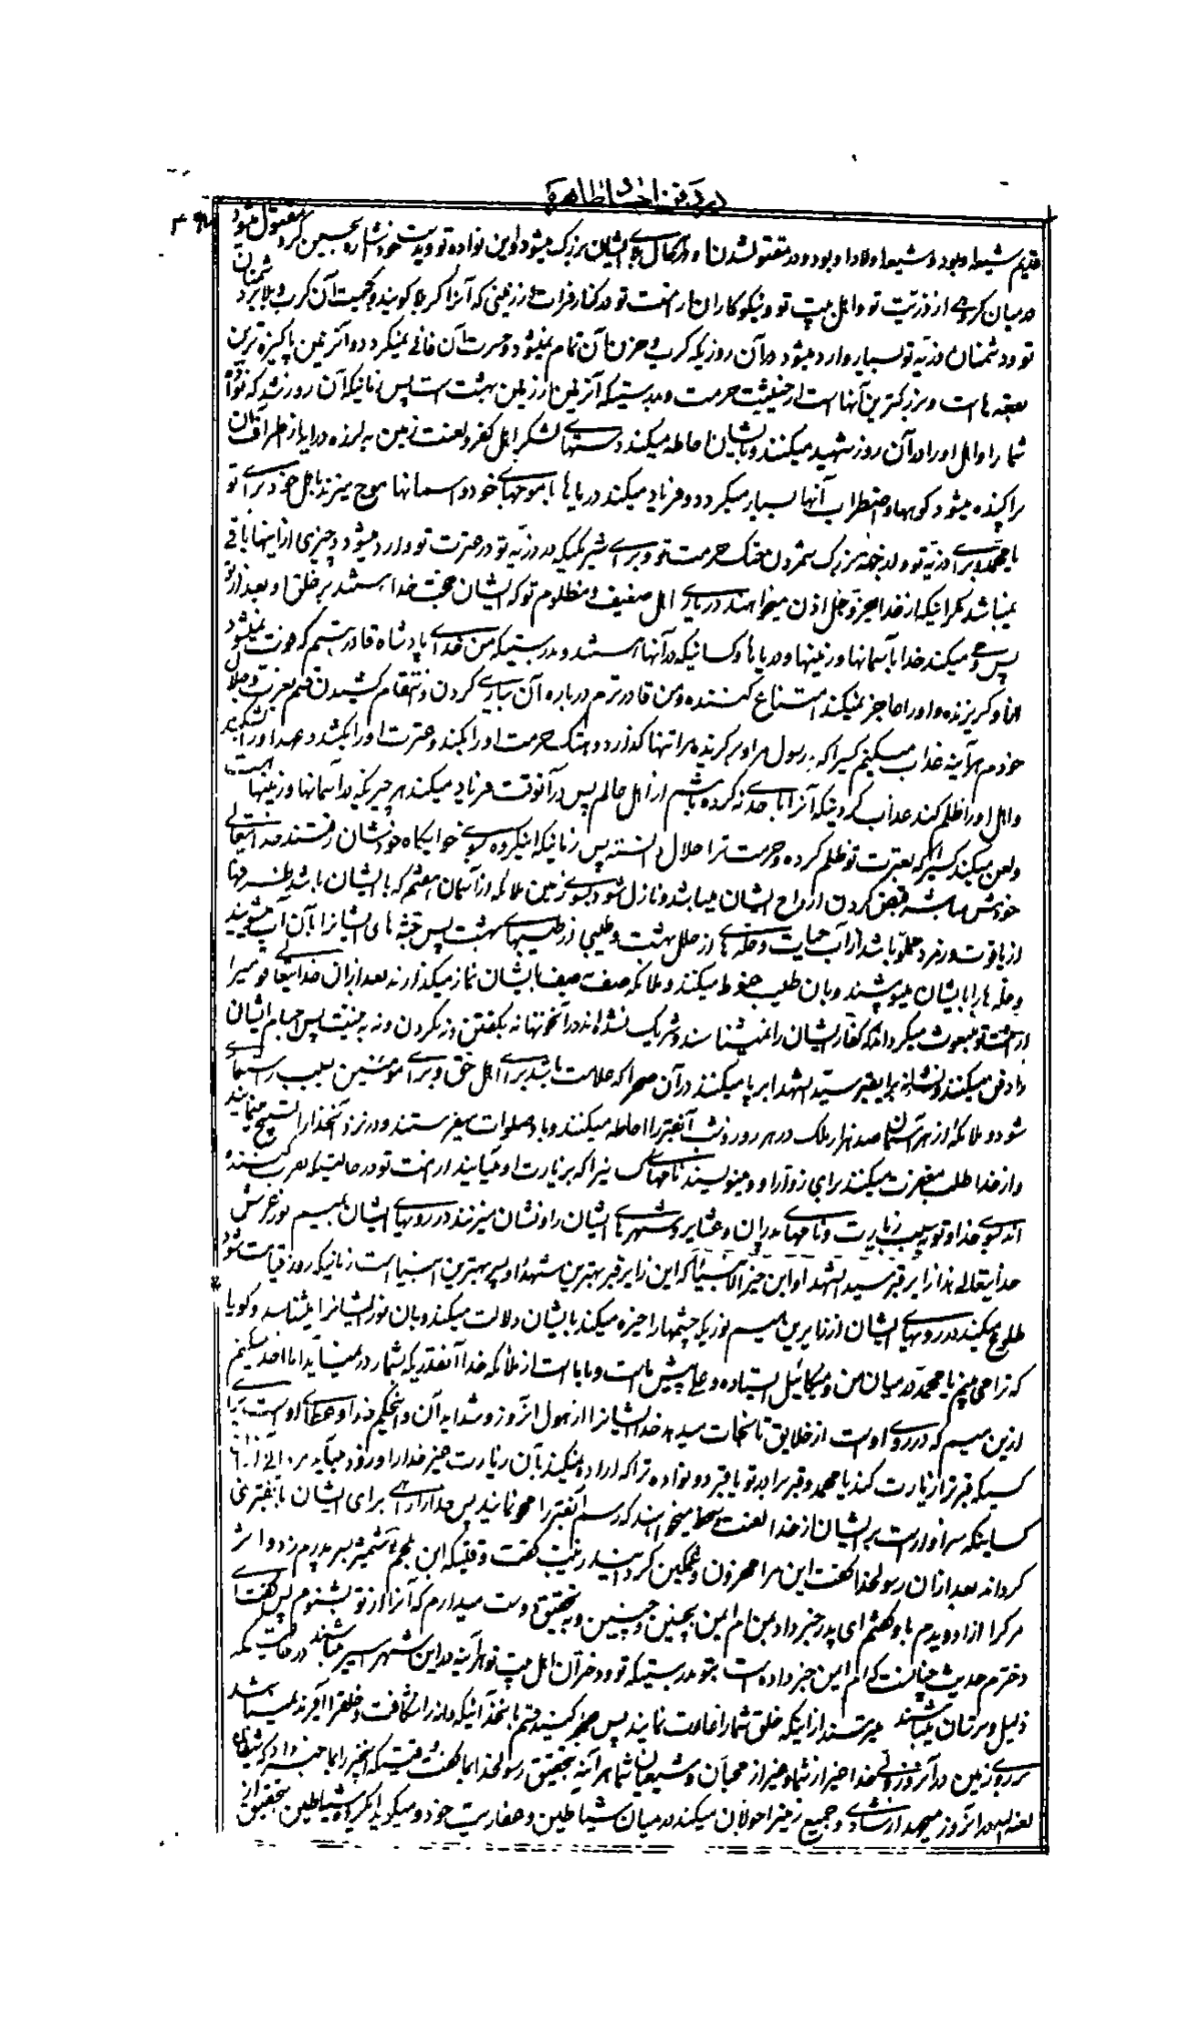 در دفن اجساد طاهره
شیعه او بود و شیعه اولاد او بود و در مقتول شدن او و در هر حال بلای ایشان بزرگ میشود و این نواده تو و بدست خود اشاره بحسین کرد مقتول میشود
در میان گروهی از ذریت تو و اهل بیت تو و نیکوکاران از امت تو در کنار فرات در زمینی که آنرا کربلا گویند و بجهت آن کرب و بلا بر دشمنان
تو و دشمنان ذریه تو بسیار وارد میشود در آن روزیکه کرب و حزن آن تمام نمیشود و حسرت آن فانی نمیگردد و آن زمین پاکیزه ترین
بقعه ها است و بزرگترین آنها است از حیثیت حرمت و بدرستیکه آن زمین از زمین بهشت است پس زمانیکه آن روز شد که نواده
شما را و اهل او را در آن روز شهید میکنند و بایشان احاطه میکند دستهای لشکر اهل کفر و لعنت زمین به لرزه در آید از اطراف آن
پراکنده میشود کوهها و اضطراب آنها بسیار میگردد و فریاد میکند دریاها با موجهای خود و آسمانها موج میزند با اهل خود برای تو
یا محمد و برای ذریه تو و بزرگ شمردن هتک حرمت تو و برای شریکه در ذریه تو و عترت تو وارد میشود و چیزی از اینها باقی
نمیباشد مگر اینکه از خدا عز و جل اذن میخواهند در یاری اهل ضعیف و مظلوم تو که ایشان حجت خدا هستند بر خلق او بعد از تو
پس وحی میکند خدا باسمانها و زمینها و دریاها و کسانیکه در آنها هستند بدرستیکه من خدای پادشاه قادر هستم که فوت نمیشود
از او گریزنده و او را عاجز نمیکند امتناع کننده و من قادرترم در باره آن یاری کردن و انتقام کشیدن قسم بعزت و جلال
خودم هر آینه عذاب میکنم کسیرا که رسول مرا و برگزیده مرا تنها گذارد و هتک حرمت او را بکند و عترت او را بکشد و عهد او را بشکند
و اهل او را ظلم کند عذاب کردنیکه آنرا باحدی نکرده باشم از اهل عالم پس در آنوقت فریاد میکند هر چیزیکه در آسمانها و زمینها است
و لعن میکند کسیرا که بعترت تو ظلم کرده و حرمت ترا حلال دانسته پس زمانیکه اینگروه بسوی خوابگاه خودشان رفتند خدایتعالی
خودش مباشر قبض کردن ارواح ایشان میباشد و نازل شود بسوی زمین ملائکه از آسمان هفتم که با ایشان باشد ظرفها
از یاقوت و زمرد مملو باشد از آب حیات و حله های از حلل بهشت و طیبی از طیبهای بهشت پس جثه های ایشانرا بآن آب میشویند
و حله ها را بایشان میپوشند و بان طیب حنوط میکند و ملائکه صف بصف بایشان نماز میگذارند بعد از آن خدایتعالی قومیرا
از امت تو مبعوث میگرداند که کفار ایشان را نمیشناسند و شریک نشده اند در آنخونها نه بگفتن و نه بکردن و نه به نیت پس اجسام ایشان
را دفن میکنند و نشانه برای قبر سید الشهدا بر پا میکنند در آن صحرا که علامت باشد برای اهل حق و برای مؤمنین سبب رستگاری
شود و ملائکه از هر آسمان صد هزار ملک در هر روز و شب آنقبر را احاطه میکنند و باو صلوات میفرستند و در نزد آنخدا را تسبیح مینمایند
و از خدا طلب مغفرت میکنند برای زوار او و مینویسند نامهای کسانیرا که بزیارت او میآیند از امت تو در حالتیکه تقرب کننده
اند بسوی خدا و تو بسبب زیارت و نامهای پدران و عشایر و شهرهای ایشان را و نشان میزنند در رویهای ایشان بمیسم نور عرش
خدایتعالی هذا زایر قبر سید الشهدا و ابن خیر الانبیاء که این زایر قبر بهترین شهدا و پسر بهترین انبیا است زمانیکه روز قیامت شود
طلوع میکند در رویهای ایشان از تاثیر این میسم نوریکه چشمها را خیره میکند بایشان دلالت میکند و بان نور ایشانرا میشناسد و گویا
که ترا میبینم یا محمد در میان من و میکائیل ایستاده و علی پیش ما است و با ما است از ملائکه خدا آنقدریکه شمار در نمیآید ما اخذ میکنیم
از این میسم که در روی او است از خلایق تا نجات میدهد خدا ایشانرا از هول آنروز و شداید آن و اینحکم خدا و عطای او است برای
کسیکه قبر ترا زیارت کند یا محمد و قبر برادر تو یا قبر دو نواده ترا که اراده نمیکند بآن زیارت جز خدا را و زود میآید
کسانیکه سزاوار است بر ایشان از خدا لعنت و سخط میخواهند که رسم آنقبر را محو نمایند پس خدا راهی برای ایشان بآنقبر نمی
گرداند بعد از آن رسولخدا گفت این مرا محزون و غمگین کردانید زینب گفت وقتیکه ابن ملجم شمشیر بر پدرم زد و اثر
مرگ را از او دیدم باو گفتم ای پدر خبر داد بمن ام ایمن بچنین و چنین و به تحقیق دوست میدارم که آنرا از تو بشنوم پس گفت ای
دخترم حدیث چنانست که ام ایمن خبر داده است بتو بدرستیکه تو و دختران اهل بیت تو هر آینه در این شهر اسیر میباشند در حالتیکه
ذلیل و سرتان میباشد میترسند از اینکه خلق شما را غارت نمایند پس صبر کنید قسم با نخدائیکه دانه را شکافت و خلق را آفرید نمیباشد
بر روی زمین در آنروز ولی خدا غیر از شما و غیر از محبان و شیعیان شما هر آینه بتحقیق رسولخدا بما گفت وقتیکه اینخبر را بما خبر داد که شیطان
لعنه الله در آنروز میجهد از شادی و جمیع زمین را جولان میکند در میان شیاطین و عفاریت خود و میگوید ای گروه شیاطین بتحقیق از